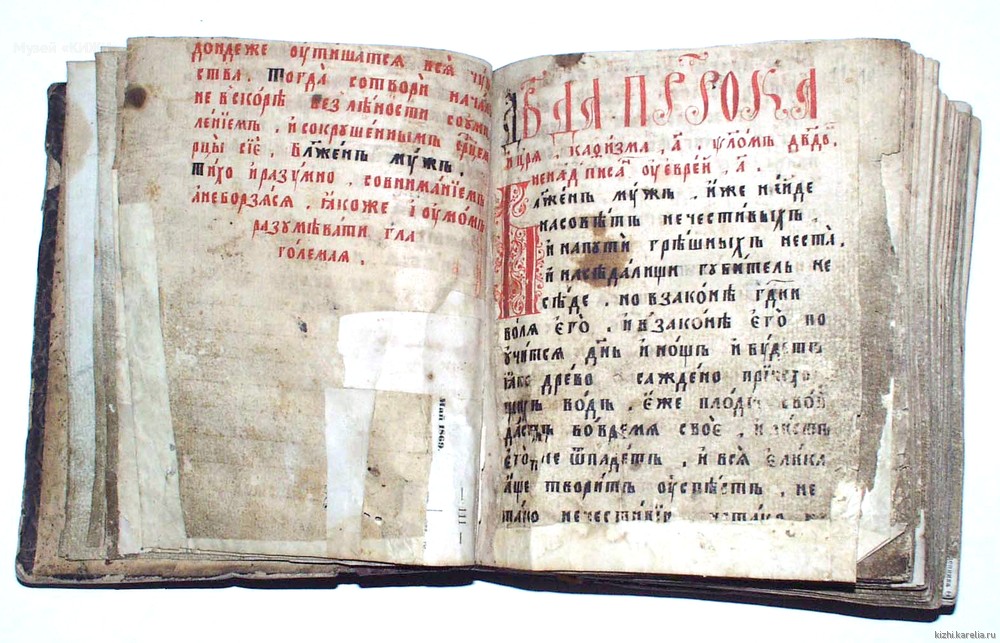 дондеже оутишатся вся чꙋв
ства. Тогда сотвори начало
не вскорѣ без лѣности соуми
лениемъ, и сокрꙋшеннымъ срцем
рцы сїе, Блаженъ мꙋжъ,
Тихо и разумно, совниманїемъ,
анеборзася, ꙗкоже и оумомъ
разумѣвати гла
големая.
Май 1869.
— III —
Двда пррока
и цря, каѳизма, а҃ ѱ҃ломъ двдв҃.
ненадписа оу еврей, а҃.
Блаженъ мꙋжъ, иже не иде
на совѣтъ нечестивыхъ,
и на пꙋти грѣшныхъ неста,
и на сѣдалищи гꙋбитель не
сѣде, но в законѣ гдни
воля его, и в законѣ его по
оучится днь и нощъ и бꙋдетъ
ꙗко древо саждено при исхо
водъ, еже плодъ свой
дастъ во время свое, и листъ
его не ѿпадетъ, и вся елика
аще творитъ оуспѣетъ, не
тако нечестивїи
Музей «КИЖИ»
kizhi.karelia.ru